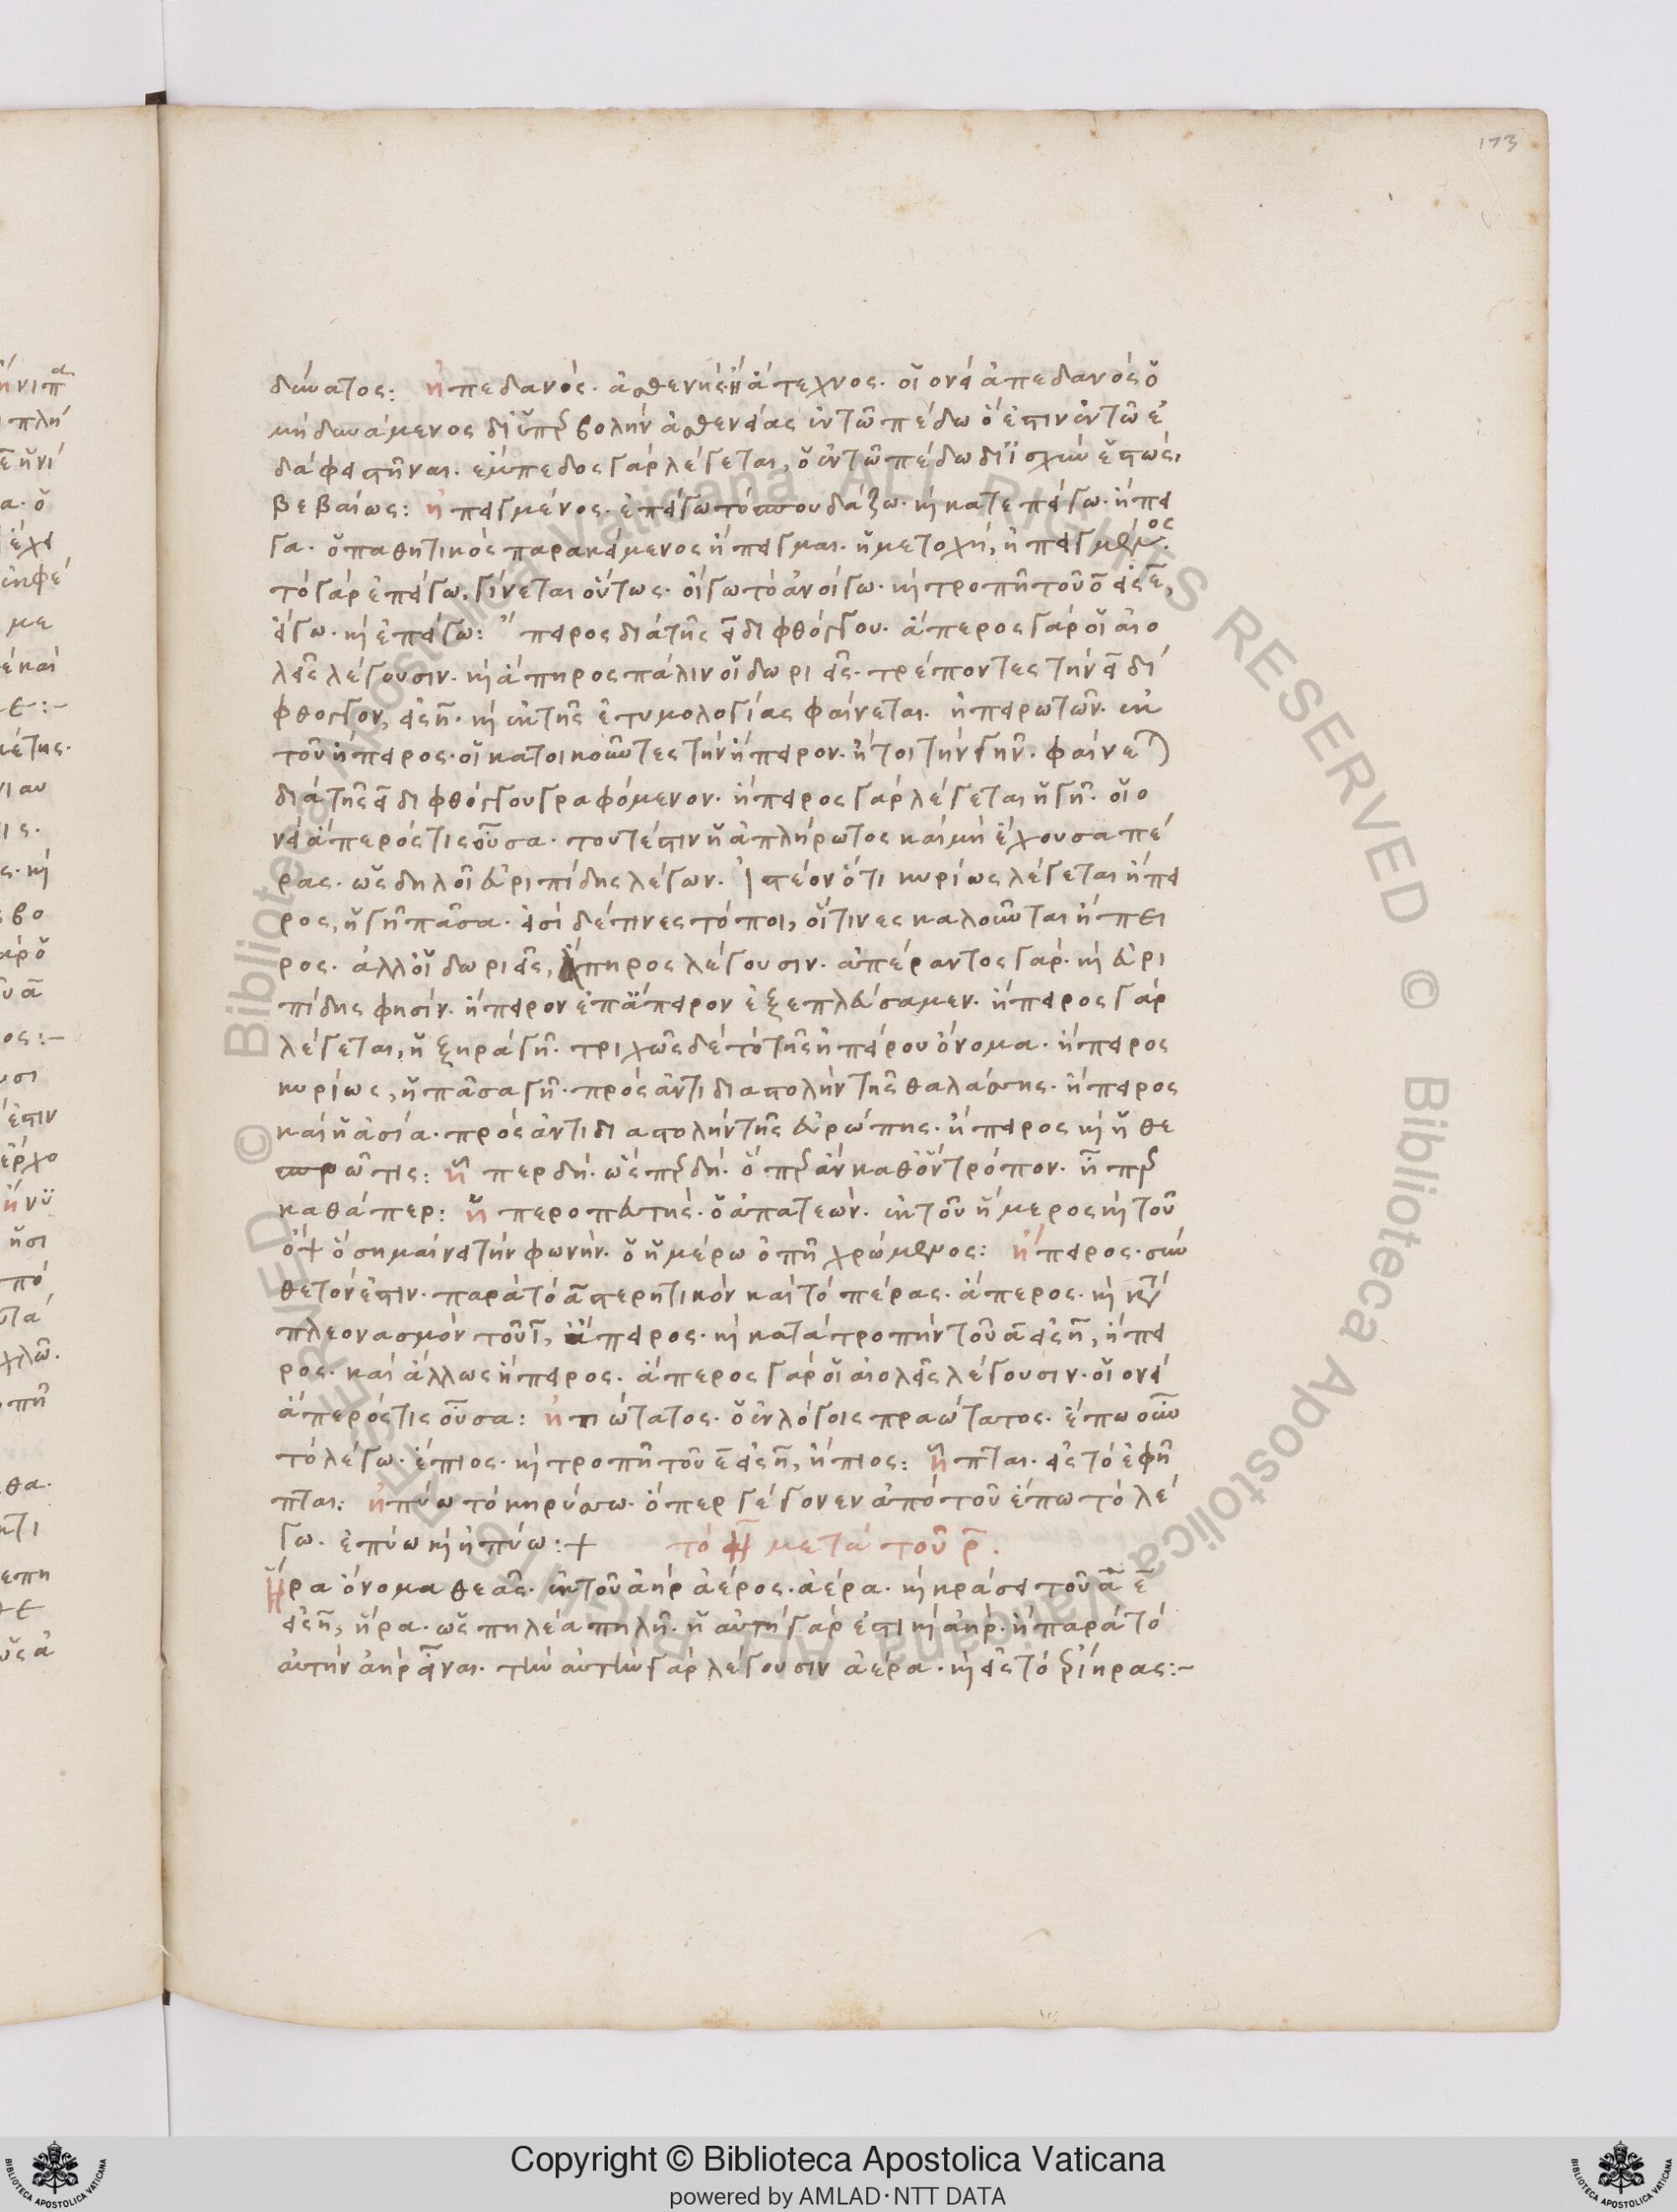 173
δύνατος: ἠπεδανός· ἀσθενὴς ἢ ἄτεχνος· οἱονεὶ ἀπεδανὸς ὁ
μὴ δυνάμενος δι' ὑπερβολὴν ἀσθενείας ἐν τῶ πέδω ὅ ἐστιν ἐν τῶ ἐ
δάφει στῆναι. ἔμπεδος γὰρ λέγεται, ὁ ἐν τῶ πέδω δι' ἰσχὺν ἑστὼς,
βεβαίως: ἠπειγμένος· ἐπείγω τὸ σπουδάζω· κὶ κατεπείγω· ἤπει
γα· ὁ παθητικὸς παρακείμενος ἤπειγμαι· ἡ μετοχὴ, ἠπειγμένος.
τὸ γὰρ ἐπείγω, γίνεται οὕτως· οἴγω τὸ ἀνοίγω· κὶ τροπῆ τοῦ ο εἰς ε,
εἴγω· κὶ ἐπείγω: ἤπειρος διὰ τῆς ει διφθόγγου· ἄπερος γὰρ οἱ αἰο
λεῖς λέγουσιν· κὶ ἄπηρος πάλιν οἱ δωριεῖς· τρέποντες τὴν ει δί
φθογγον, εἰς η· κὶ ἐκ τῆς ἐτυμολογίας φαίνεται· ἠπειρωτῶν· ἐκ
τοῦ ἤπειρος· οἱ κατοικοῦντες τὴν ἤπειρον· ἤτοι τὴν γῆν· φαίνεται
διὰ τῆς ει διφθόγγου γραφόμενον· ἤπειρος γὰρ λέγεται ἡ γῆ· οἱο
νεὶ ἄπερός τις οὖσα· τουτέστιν ἡ ἀπλήρωτος καὶ μὴ ἔχουσα πέ
ρας· ὡς δηλοῖ εὐριπίδης λέγων· ἰστέον ὅτι κυρίως λέγεται ἤπει
ρος, ἡ γῆ πᾶσα· εἰσὶ δέ τινες τόποι, οἵτινες καλοῦνται ἤπει
ρος· ἀλλ' οἱ δωριεῖς, ἄπηρος λέγουσιν· ἀπέραντος γάρ· κὶ εὐρι
πίδης φησίν· ἤπειρον ἐπ' ἄπειρον ἐξεπλεύσαμεν· ἤπειρος γὰρ
λέγεται, ἡ ξηρὰ γῆ· τριχῶς δὲ τὸ τῆς ἠπείρου ὄνομα· ἤπειρος
κυρίως, ἡ πᾶσα γῆ· πρὸς ἀντιδιαστολὴν τῆς θαλάσσης· ἤπειρος
καὶ ἡ ἀσία· πρὸς ἀντιδιαστολὴν τῆς εὐρώπης· ἤπειρος κὶ ἡ θε
σπρῶτις: ἧπερ δή· ὥσπερ δή· ὅπερ ἂν καθ' ὃν τρόπον· ἧπερ
καθάπερ: ἠπεροπευτής· ὁ ἀπατεών· ἐκ τοῦ ἥμερος κὶ τοῦ
ὄψ ὃ σημαίνει τὴν φωνήν· ὁ ἡμέρω ὀπῆ χρώμενος: ἤπειρος· σύν
θετόν ἐστιν· παρὰ τὸ α στερητικὸν καὶ τὸ πέρας· ἄπερος· κὶ κατὰ
πλεονασμὸν τοῦ ι, ἄπειρος· κὶ κατὰ τροπὴν τοῦ α εἰς η, ἤπει
ρος· καὶ ἄλλως ἤπειρος· ἄπερος γὰρ οἱ αἰολεῖς λέγουσιν· οἱονεὶ
ἄπερός τις οὖσα: ἠπιώτατος· ὁ ἐν λόγοις πραώτατος· ἔπω οὖν
τὸ λέγω· ἔπιος· κὶ τροπῆ τοῦ ε εἰς η, ἤπιος: ἧπται· εἰς τὸ ἐφῆ
πται: ἠπύω τὸ κηρύσσω· ὅπερ γέγονεν ἀπὸ τοῦ ἔπω τὸ λέ
γω· ἐπύω κὶ ἠπύω:+ τὸ η μετὰ τοῦ ρ.
Ἥρα ὄνομα θεᾶς· ἐκ τοῦ ἀὴρ ἀέρος· ἀέρα· κὶ κράσει τοῦ α ε
εἰς η, ἥρα· ὡς πηλέα πηλῆ· ἡ αὐτὴ γάρ ἐστι κὶ ἀήρ· ἢ παρὰ τὸ
αὐτὴν ἀὴρ εἶναι· τὴν αὐτὴν γὰρ λέγουσιν ἀέρα· κὶ εἰς τὸ ῥίηρας:-